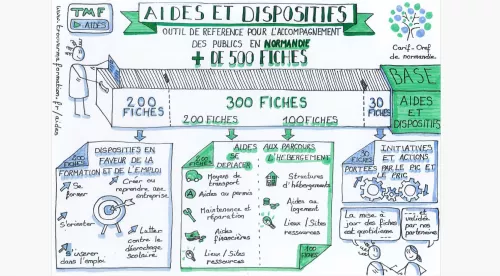 TMF
▷ AIDES
www.trouvermaformation.fr/aides
AIDES ET DISPOSITIFS
OUTIL DE REFERENCE POUR L'ACCOMPAGNEMENT
DES PUBLICS EN NORMANDIE
+ DE 500 FICHES
Carif-Oref
de normandie
200
FICHES
300 FICHES
200 FICHES
100 FICHES
30
FICHES
BASE
AIDES
ET
DISPOSITIFS
200
FICHES
DISPOSITIFS EN
FAVEUR DE LA
FORMATION ET DE L'EMPLOI
Se
former
Créer ou
reprendre une
entreprise
S'orienter
Lutter
contre le
décrochage
scolaire
S'insérer
dans l'emploi
200
FICHES
AIDES
SE
DEPLACER
Moyens de
transport
Aides au permis
Maintenance et
réparation
Aides
financières
Lieux / Sites
ressources
AUX PARCOURS
L'HEBERGEMENT
Structures
d'hébergements
Aide au
logement
Lieux / Sites
ressources
100
FICHES
30
FICHES
INITIATIVES
ET ACTIONS
PORTEES PAR LE PIC ET
LE PRIC
La mise à
jour des fiches
est quotidienne
validée
par nos
partenaires